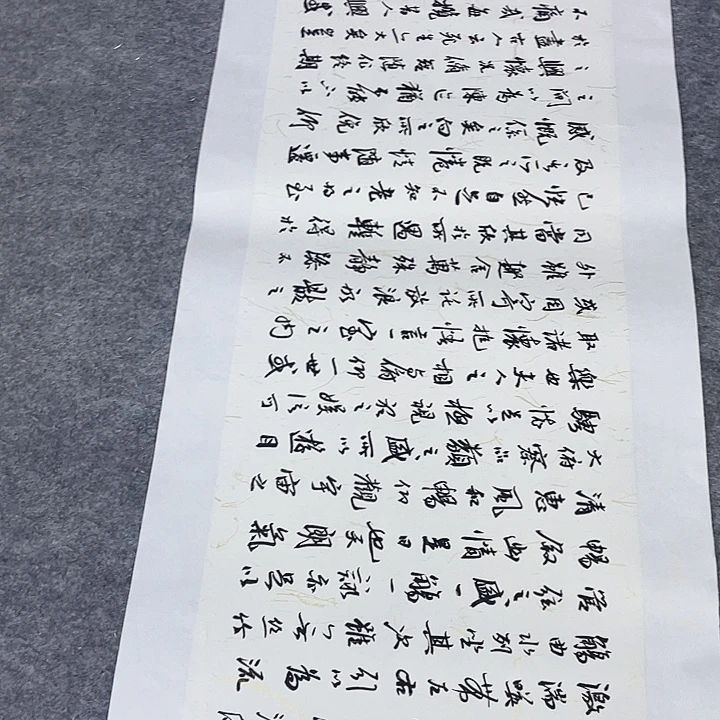 激湍映帶左右引以為流
觴曲水列坐其次雖無絲竹
管弦之盛一觴一詠亦足以
暢敘幽情是日也天朗氣
清惠風和暢仰觀宇宙之
大俯察品類之盛所以遊目
騁懷足以極視聽之娛信可
樂也夫人之相與俯仰一世或
取諸懷抱悟言一室之內
或因寄所託放浪形骸之
外雖趣舍萬殊靜躁不
同當其欣於所遇暫得於
己快然自足不知老之將至
及其所之既倦情隨事遷
感慨係之矣向之所欣俛仰
之間以為陳迹猶不能不以
之興懷況脩短隨化終期
於盡古人云死生亦大矣豈
不痛哉每攬昔人興感